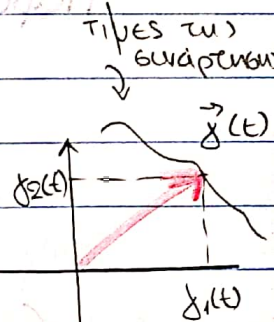 τιμές της
συνάρτησης
γ⃗(t)
γ₂(t)
γ₁(t)